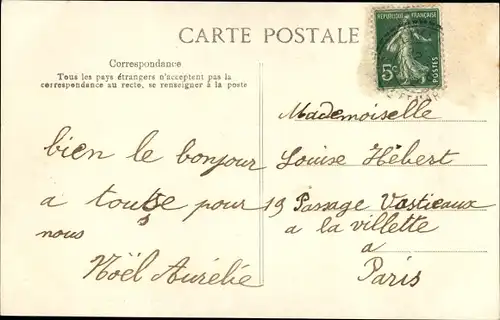 CARTE POSTALE
RÉPUBLIQUE FRANÇAISE
5c
POSTES
Correspondance
Tous les pays étrangers n'acceptent pas la
correspondance au recto, se renseigner à la poste
bien le bonjour
a toutse pour
nous
Noël Aurélie
Mademoiselle
Louise Hébert
19 Passage
a la villette
a
Paris